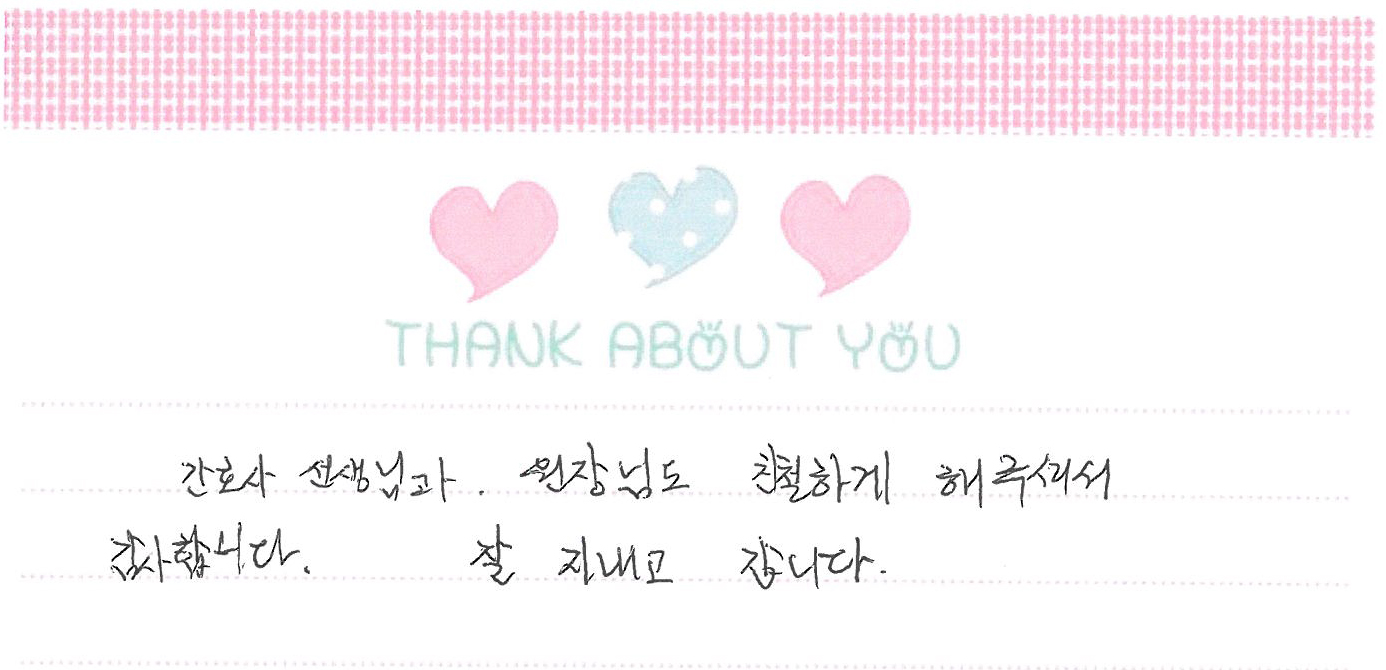 THANK ABOUT YOU
간호사 선생님과. 원장님도 친철하게 해주셔서
감사합니다. 잘 지내고 갑니다.